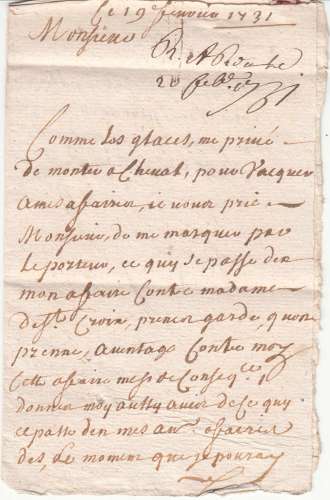 le 19 feuvrier 1731
Monsieur
20 feb.
Comme les glaces, me prive
de monter a Cheval, pour vacquer
a mes affaires, ie vous prie
Monsieur, de me marquer par
le porteur, ce quy se passe dens
mon affaire Contre madame
de St. Croix, prener garde, quon ne
prenne, avantage Contre moy
Cette affaire mest de Conseq.ce,
donner moy aussy avis de ce quy
ce passe den mes au.es affaires
des, le moment que je pouray